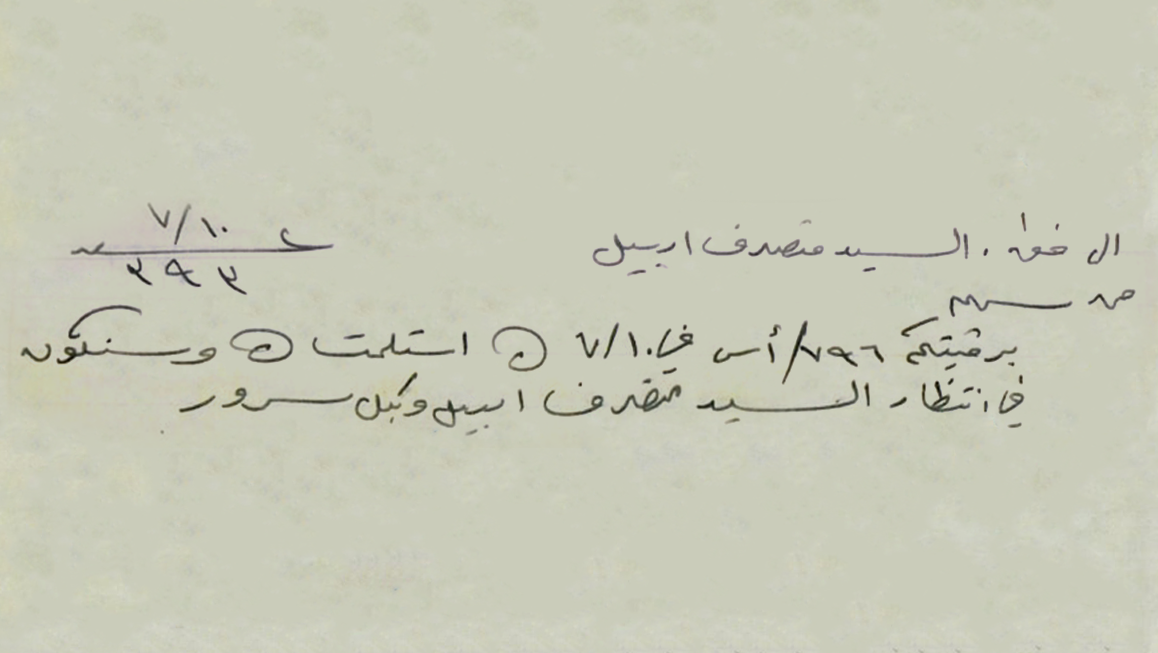 ٧/١٠
٣٩٣
السيد متصرف اربيل
من
برقيتكم ٧٩٦/أس في ٧/١٠ استلمت وسنكون
في انتظار السيد متصرف اربيل وبكل سرور